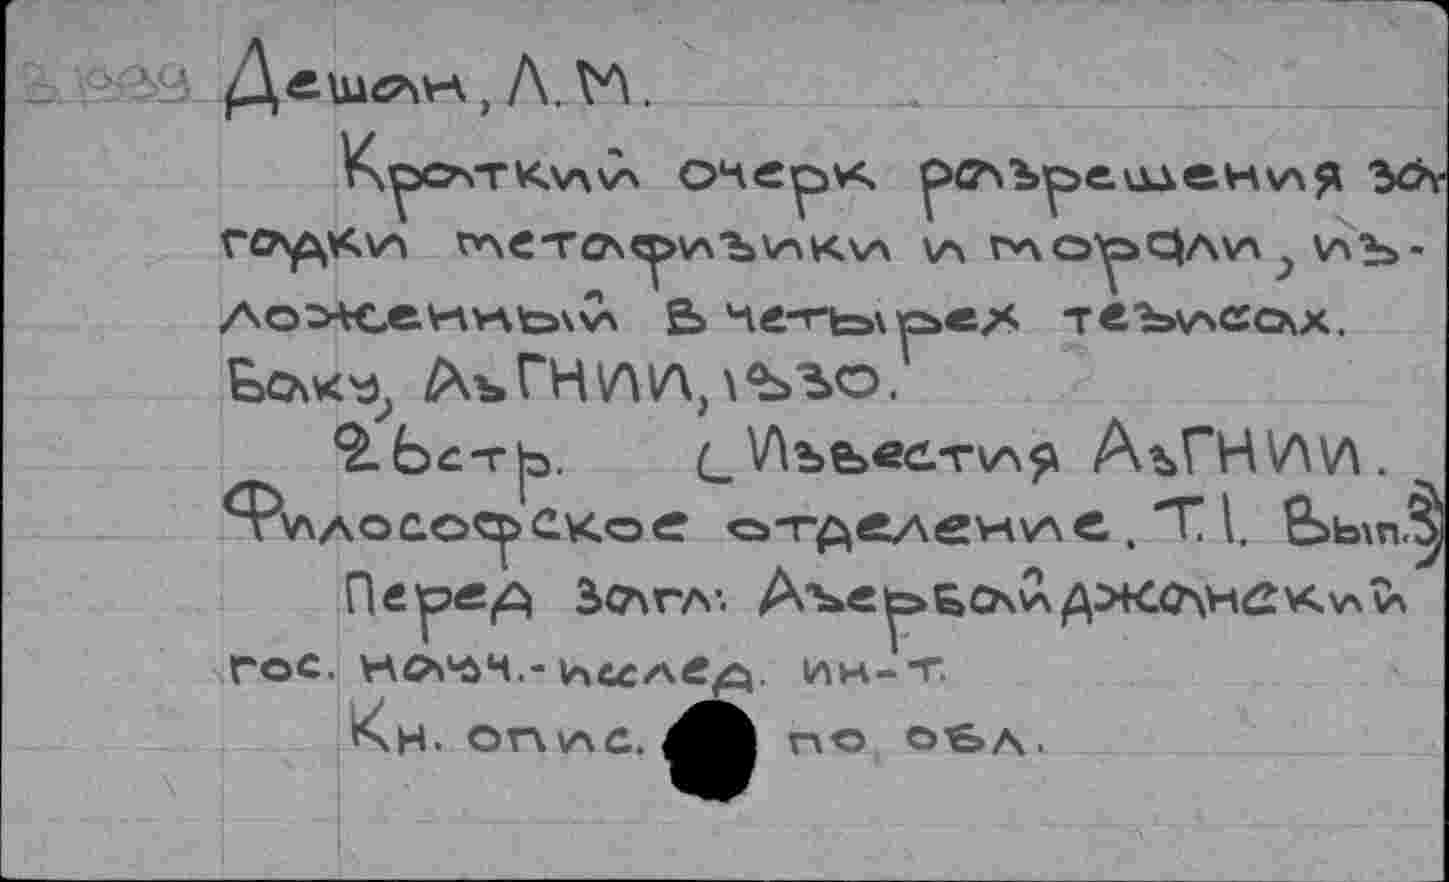 Дешан, Л.М.
Краткий очерк разрешения за-
гадки метафизики и морали, из-
ложенный в четырех тезисах.
Баку, АзГНИИ, 1930.
21 стр. (Известия АзГНИИ.
Философское отделение. Т.1. Вып.3)
Перед загл.: Азербайджанский
гос. науч.-исслед. ин-т.
Кн. опис. по обл.